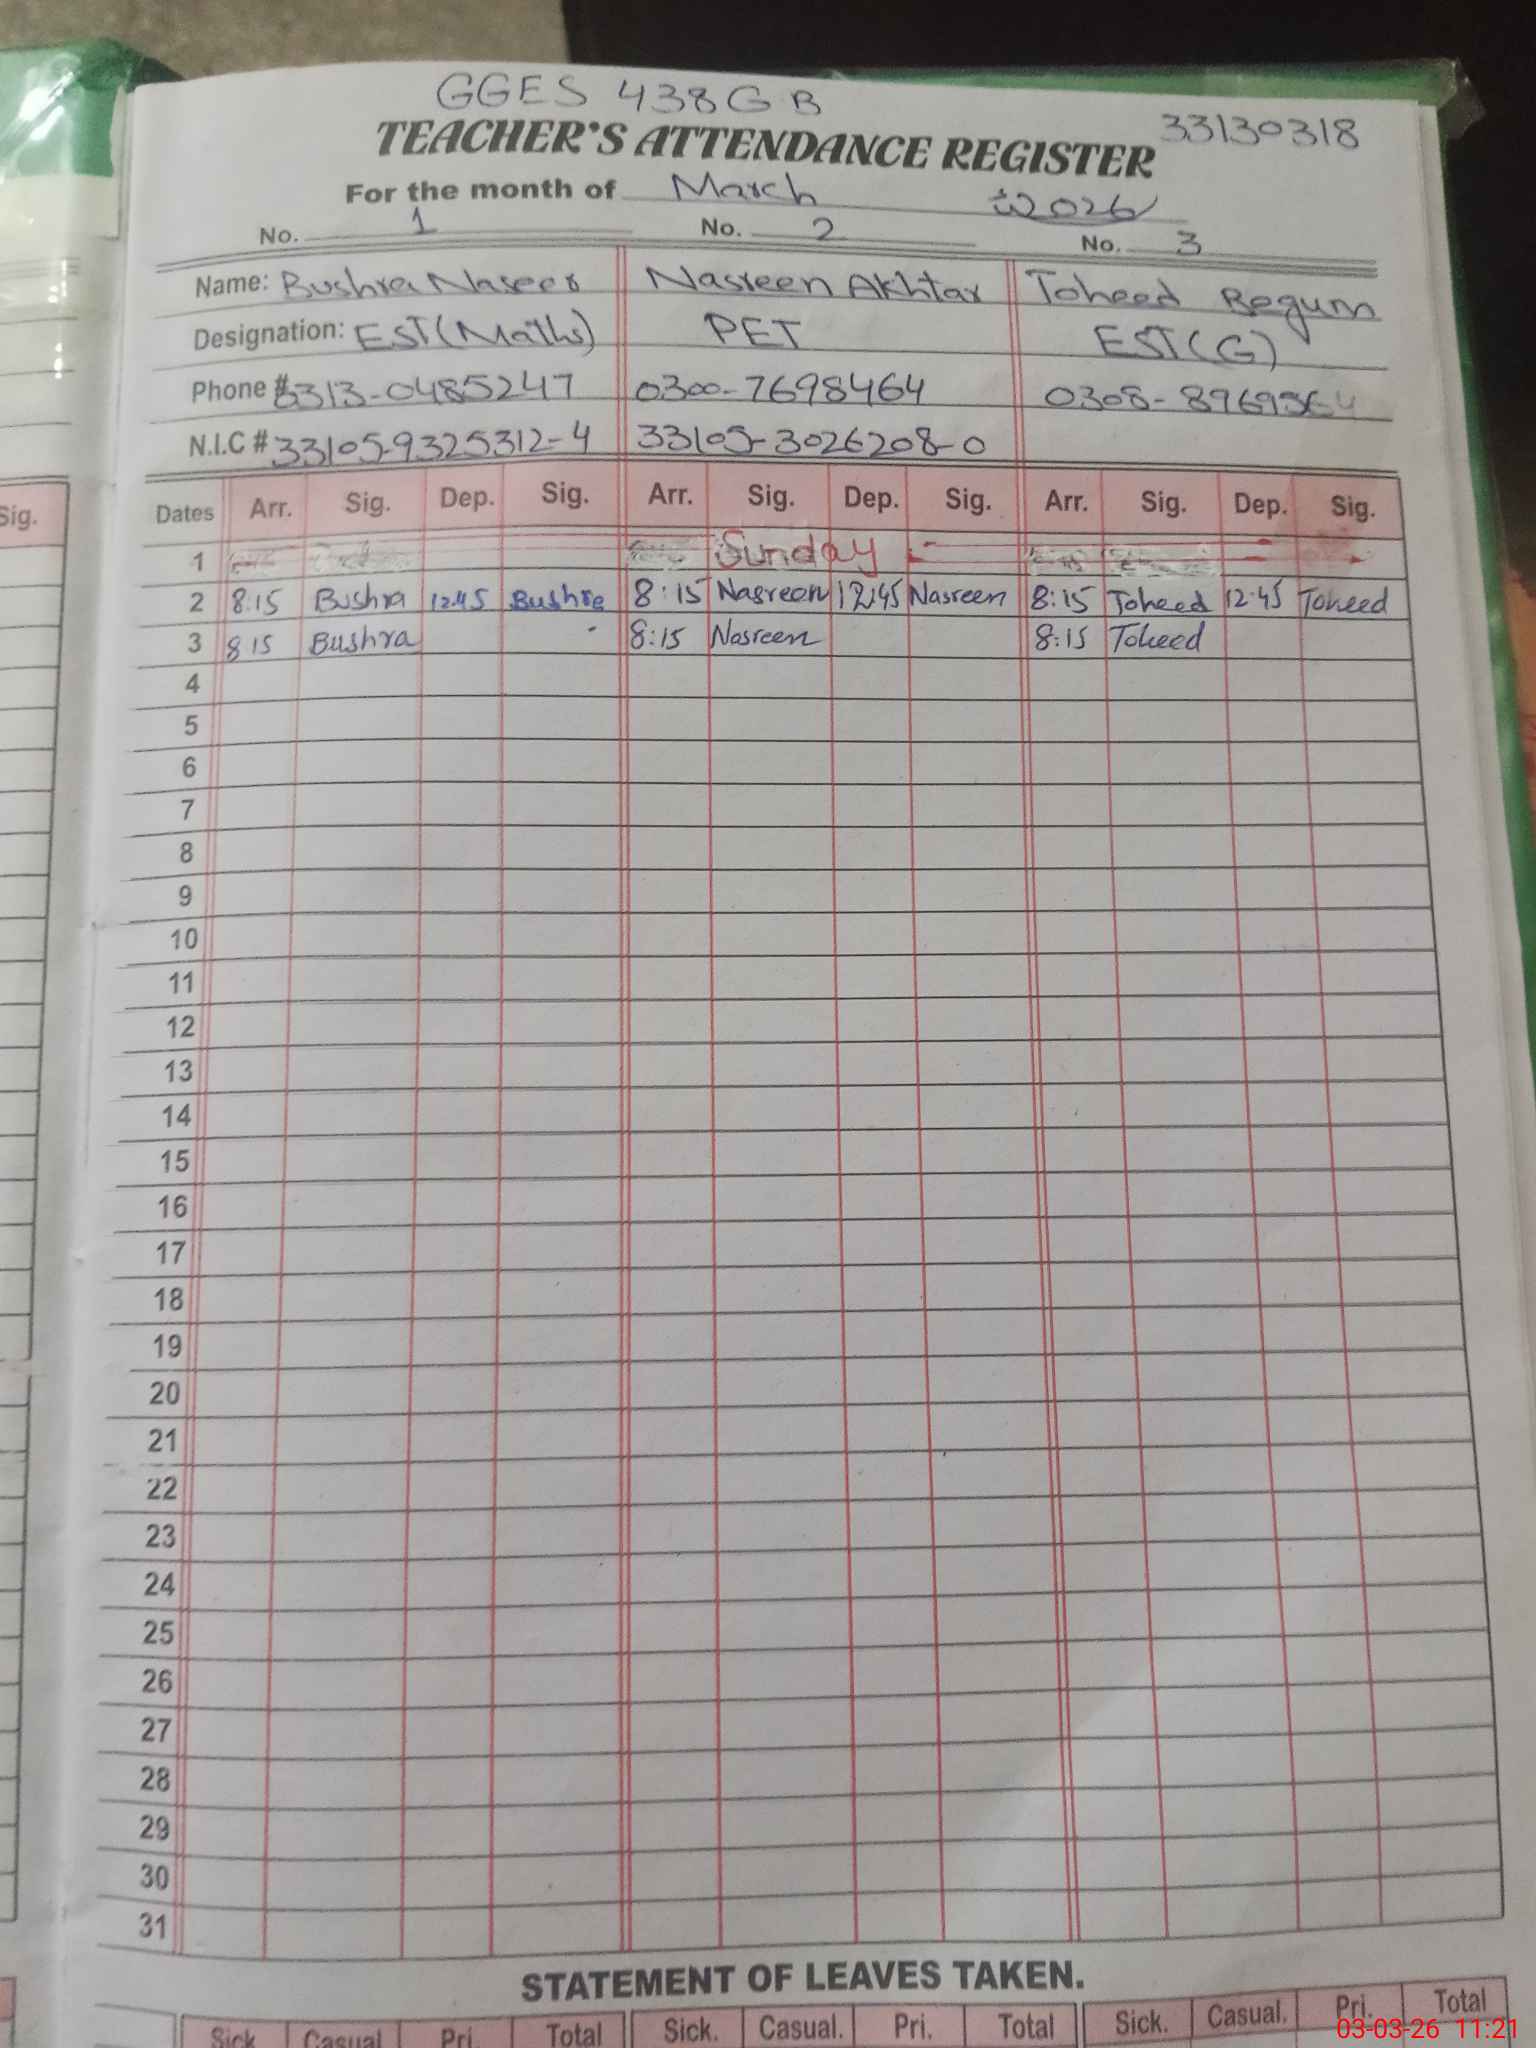 GGES 438 G B
33130318
TEACHER'S ATTENDANCE REGISTER
For the month of March 2026
No. 1 No. 2 No. 3
Name: Bushra Naseer Nasreen Akhtar Toheed Begum
Designation: EST(Maths) PET EST(G)
Phone # 0313-0485247 0300-7698464 0308-
N.I.C # 33105-9325312-4 33105-3026208-0
Sig. Dates Arr. Sig. Dep. Sig. Arr. Sig. Dep. Sig. Arr. Sig. Dep. Sig.
1 Sunday
2 8:15 Bushra 12:45 Bushra 8:15 Nasreen 12:45 Nasreen 8:15 Toheed 12:45 Toheed
3 8 15 Bushra 8:15 Nasreen 8:15 Toheed
4
5
6
7
8
9
10
11
12
13
14
15
16
17
18
19
20
21
22
23
24
25
26
27
28
29
30
31
STATEMENT OF LEAVES TAKEN.
Sick Casual Pri. Total Sick. Casual. Pri. Total Sick. Casual. Pri. Total
03-03-26 11:21